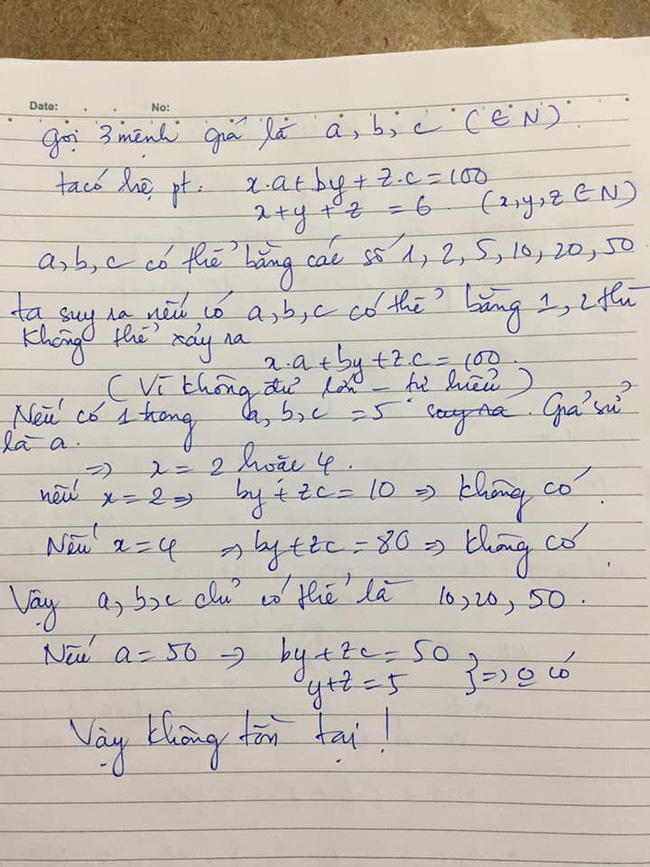 Date: . . No:
gọi 3 mệnh giá là a, b, c (∈ N)
ta có hệ pt. x.a + by + z.c = 100
x + y + z = 6 (x, y, z ∈ N)
a, b, c có thể bằng các số 1, 2, 5, 10, 20, 50
ta suy ra nếu có a, b, c có thể bằng 1, 2 thì
không thể xảy ra
x.a + by + z.c = 100.
(Vì không đủ lớn - tự hiểu)
Nếu có 1 trong a, b, c = 5 suy ra. Giả sử
là a.
=> x = 2 hoặc 4.
nếu x = 2 => by + zc = 10 => không có
Nếu x = 4 => by + zc = 80 => không có
Vậy a, b, c chỉ có thể là 10, 20, 50.
Nếu a = 50 -> by + zc = 50
y + z = 5 } => o có
Vậy không tồn tại!